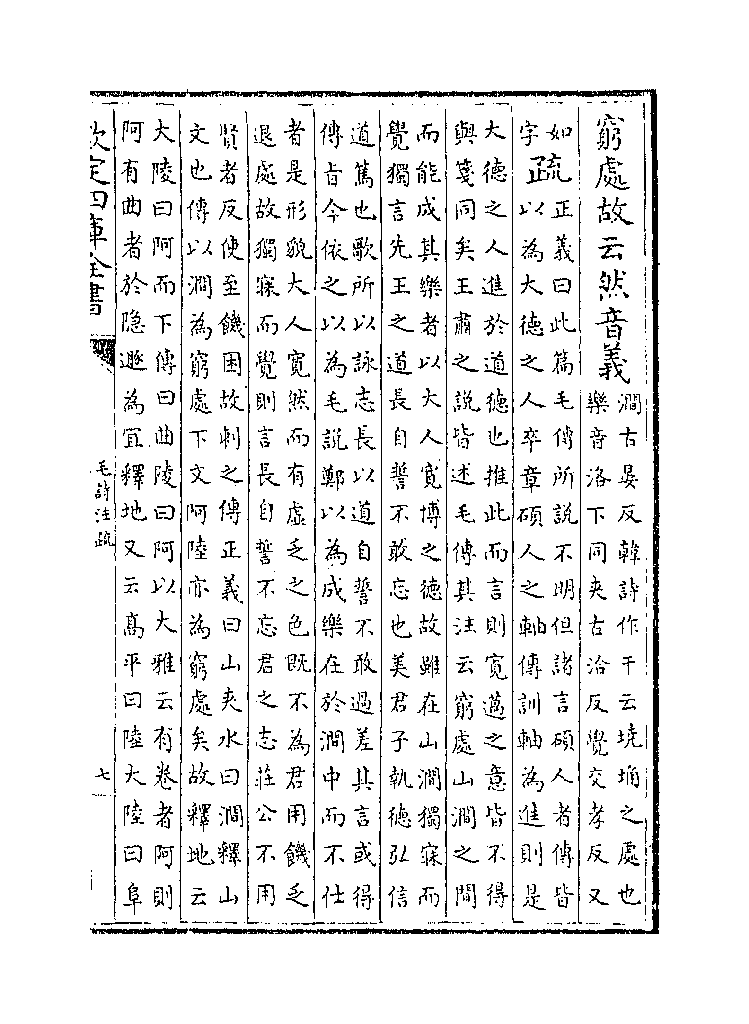 窮處故云然音義
澗古晏反韓詩作干云墝埆之處也
樂音洛下同夾古洽反覺交孝反又
如
字
疏
正義曰此篇毛傳所說不明但諸言碩人者傳皆
以為大德之人卒章碩人之軸傳訓軸為進則是
大德之人進於道德也推此而言則寬薖之意皆不得
與箋同矣王肅之說皆述毛傳其注云窮處山澗之間
而能成其樂者以大人寬博之德故雖在山澗獨寐而
覺獨言先王之道長自誓不敢忘也美君子執德弘信
道篤也歌所以詠志長以道自誓不敢過差其言或得
傳旨今依之以為毛說鄭以為成樂在於澗中而不仕
者是形貌大人寬然而有虛乏之色既不為君用饑乏
退處故獨寐而覺則言長自誓不忘君之志莊公不用
賢者反使至饑困故刺之傳正義曰山夾水曰澗釋山
文也傳以澗為窮處下文阿陸亦為窮處矣故釋地云
大陵曰阿而下傳曰曲陵曰阿以大雅云有卷者阿則
阿有曲者於隱遯為宜釋地又云高平曰陸大陸曰阜
欽定四庫全書
毛詩注疏
七